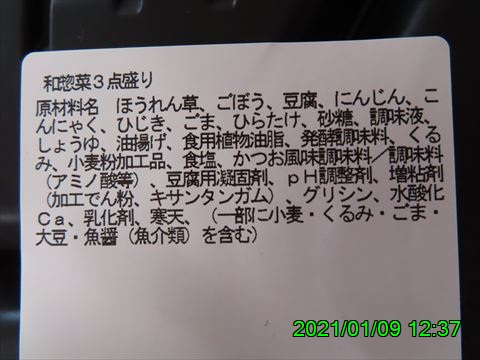 和惣菜３点盛り
原材料名　ほうれん草、ごぼう、豆腐、にんじん、こ
んにゃく、ひじき、ごま、ひらたけ、砂糖、調味液、
しょうゆ、油揚げ、食用植物油脂、発酵調味料、くる
み、小麦粉加工品、食塩、かつお風味調味料／調味料
（アミノ酸等）、豆腐用凝固剤、ｐＨ調整剤、増粘剤
（加工でん粉、キサンタンガム）、グリシン、水酸化
Ｃａ、乳化剤、寒天、（一部に小麦・くるみ・ごま・
大豆・魚醤（魚介類）を含む）
2021/01/09 12:37